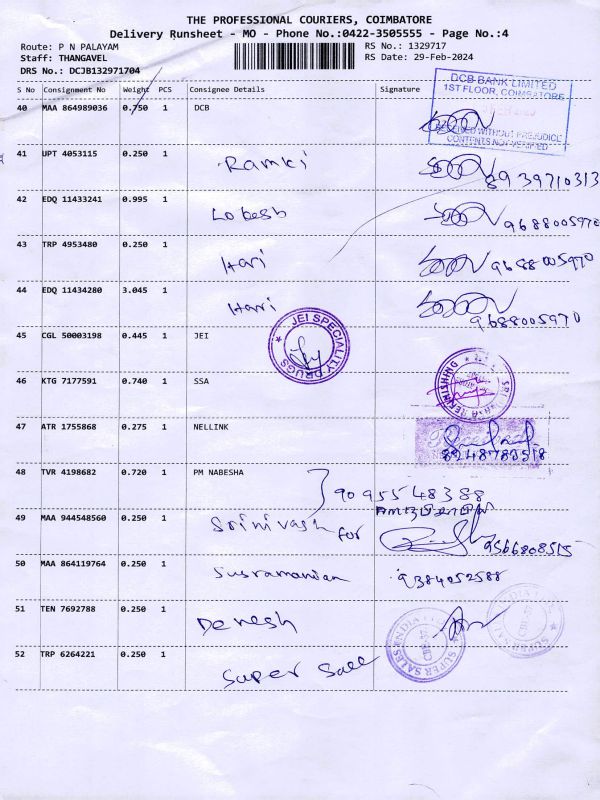 THE PROFESSIONAL COURIERS, COIMBATORE
Delivery Runsheet - MO - Phone No.:0422-3505555 - Page No.:4
Route: P N PALAYAM RS No.: 1329717
Staff: THANGAVEL RS Date: 29-Feb-2024
DRS No.: DCJB132971704
S No Consignment No Weight PCS Consignee Details Signature
DCB BANK LIMITED
1ST FLOOR, COIMBATORE
40 MAA 864989036 0.750 1 DCB
RECEIVED WITHOUT PREJUDICE
CONTENTS NOT VERIFIED
41 UPT 4053115 0.250 1 Ramki 8939710313
42 EDQ 11433241 0.995 1 Lokesh 9688005970
43 TRP 4953480 0.250 1 Hari 9688005970
44 EDQ 11434280 3.045 1 Hari 9688005970
45 CGL 50003198 0.445 1 JEI
JEI SPECIALITY DRUGS
46 KTG 7177591 0.740 1 SSA
47 ATR 1755868 0.275 1 NELLINK
8948783518
48 TVR 4198682 0.720 1 PM NABESHA
9095548388
49 MAA 944548560 0.250 1 Srinivash for 9566808515
50 MAA 864119764 0.250 1 Susramanian 9384052588
51 TEN 7692788 0.250 1 Denesh
SUPER SALES INDIA
52 TRP 6264221 0.250 1 Super Sale